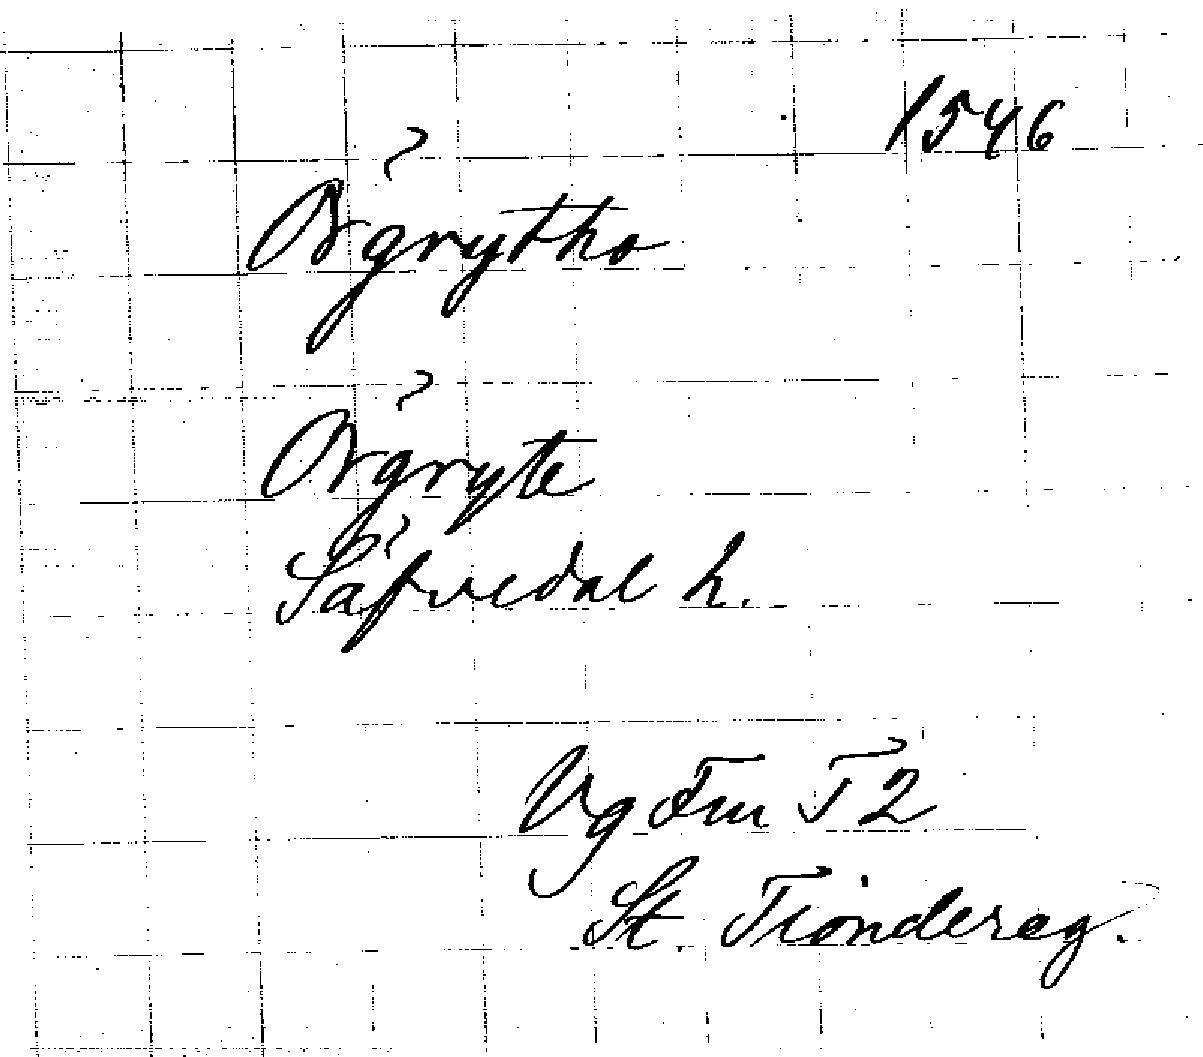 1546
Örgrytho
Örgryte
Säfvedal h.
Vg Fm T 2
St. Tiondereg.